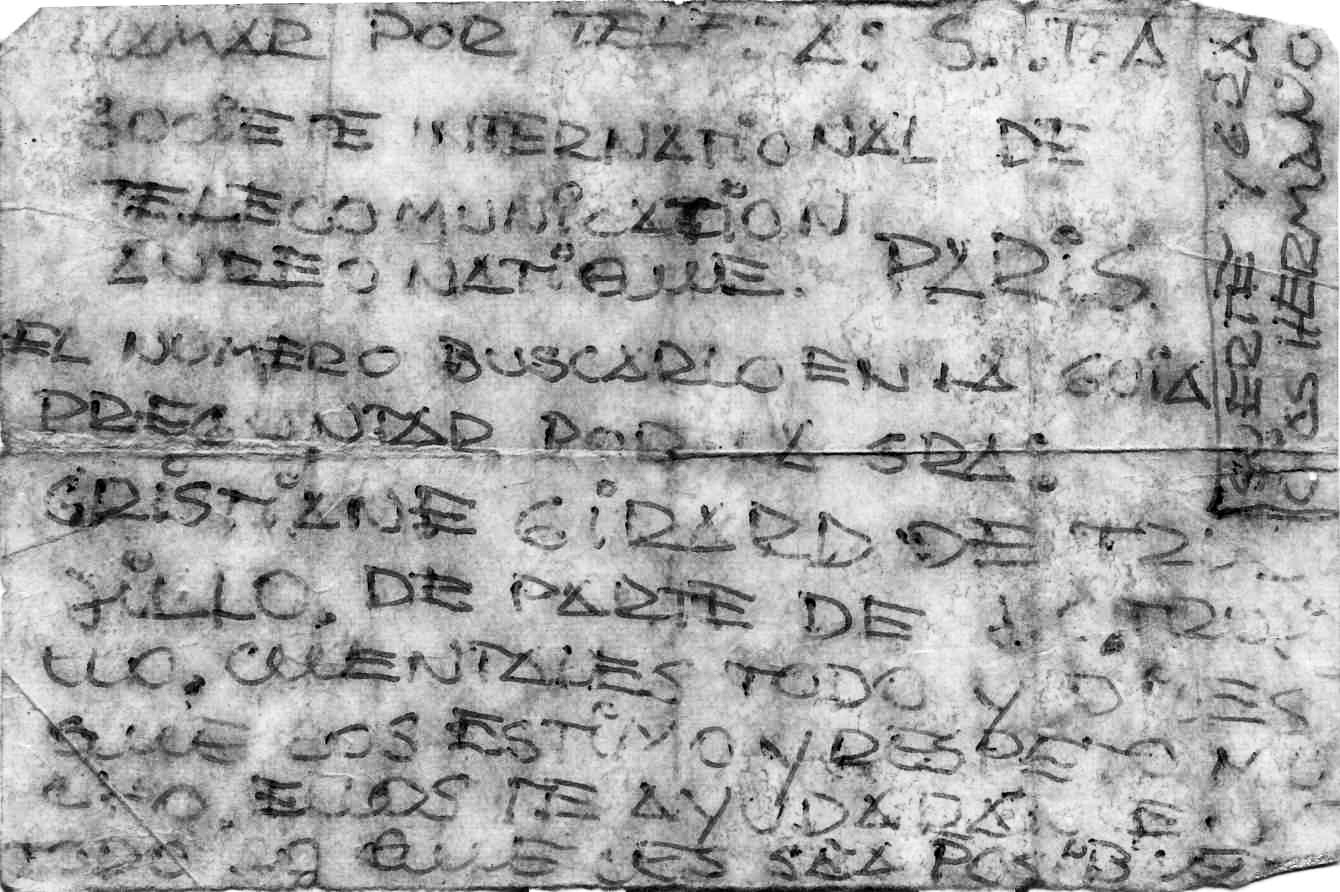 LLAMAR POR TELEF A: S.I.T.A
SOCIETE INTERNATIONAL DE
TELECOMUNICATION
AUREONATIQUE. PARIS.
EL NUMERO BUSCARLO EN LA GUIA
PREGUNTAR POR LA SRA:
CRISTIANE GIRARD DE TRU
JILLO, DE PARTE DE TRUJI
LLO, CUENTALES TODO Y DILES
QUE LOS ESTIMO Y RESPETO MU
CHO, ELLOS TE AYUDARAN EN
TODO LO QUE LES SEA POSIBLE
SUERTE Y GRA
CIAS HERMANO